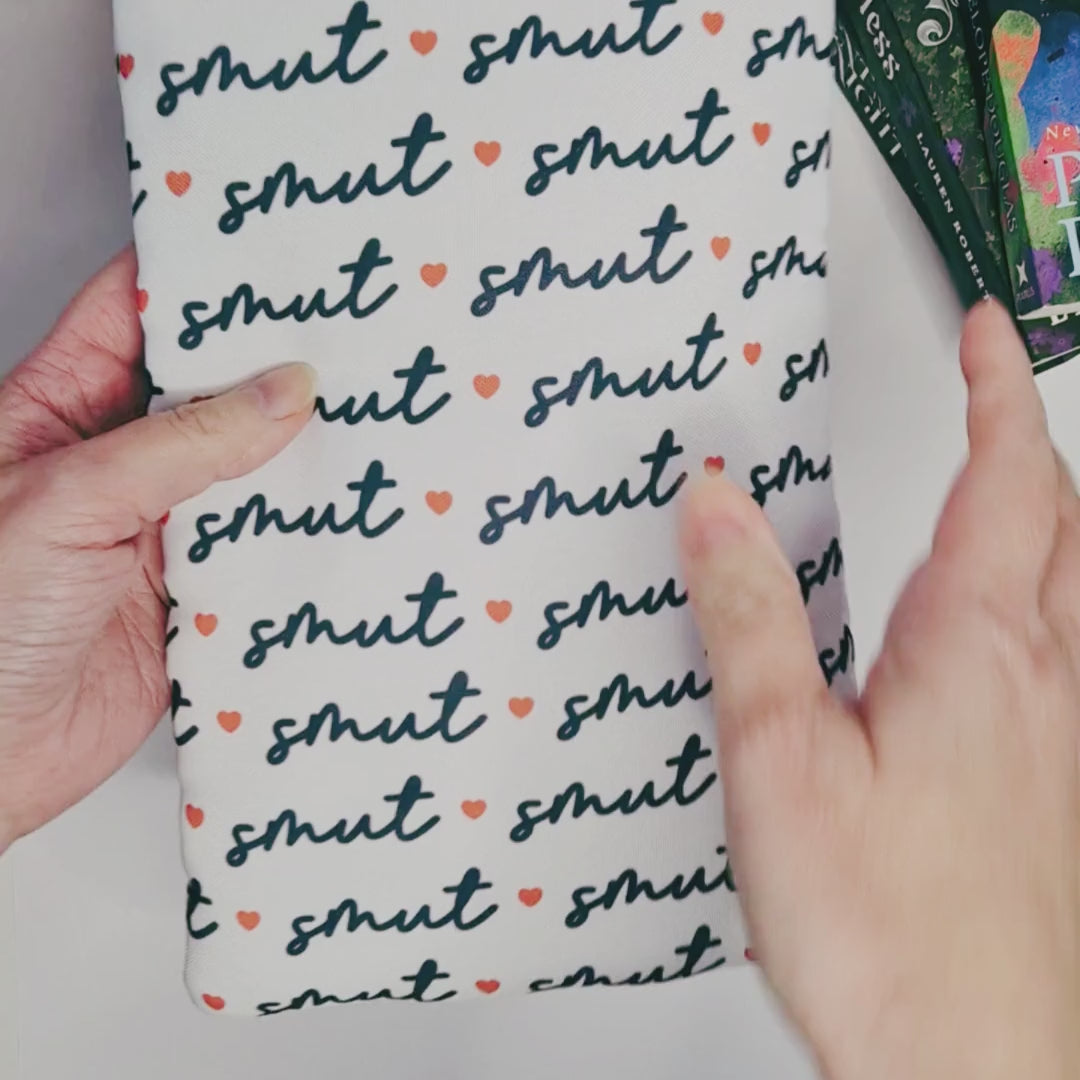 smut smut sm
smut smut sm
smut smut smu
mut smut sm
smut smut smu
smut smu sm
smut smu sm
smut smut
t smut smut
smut smut
less
LAUREN ROBERT
Ne
P